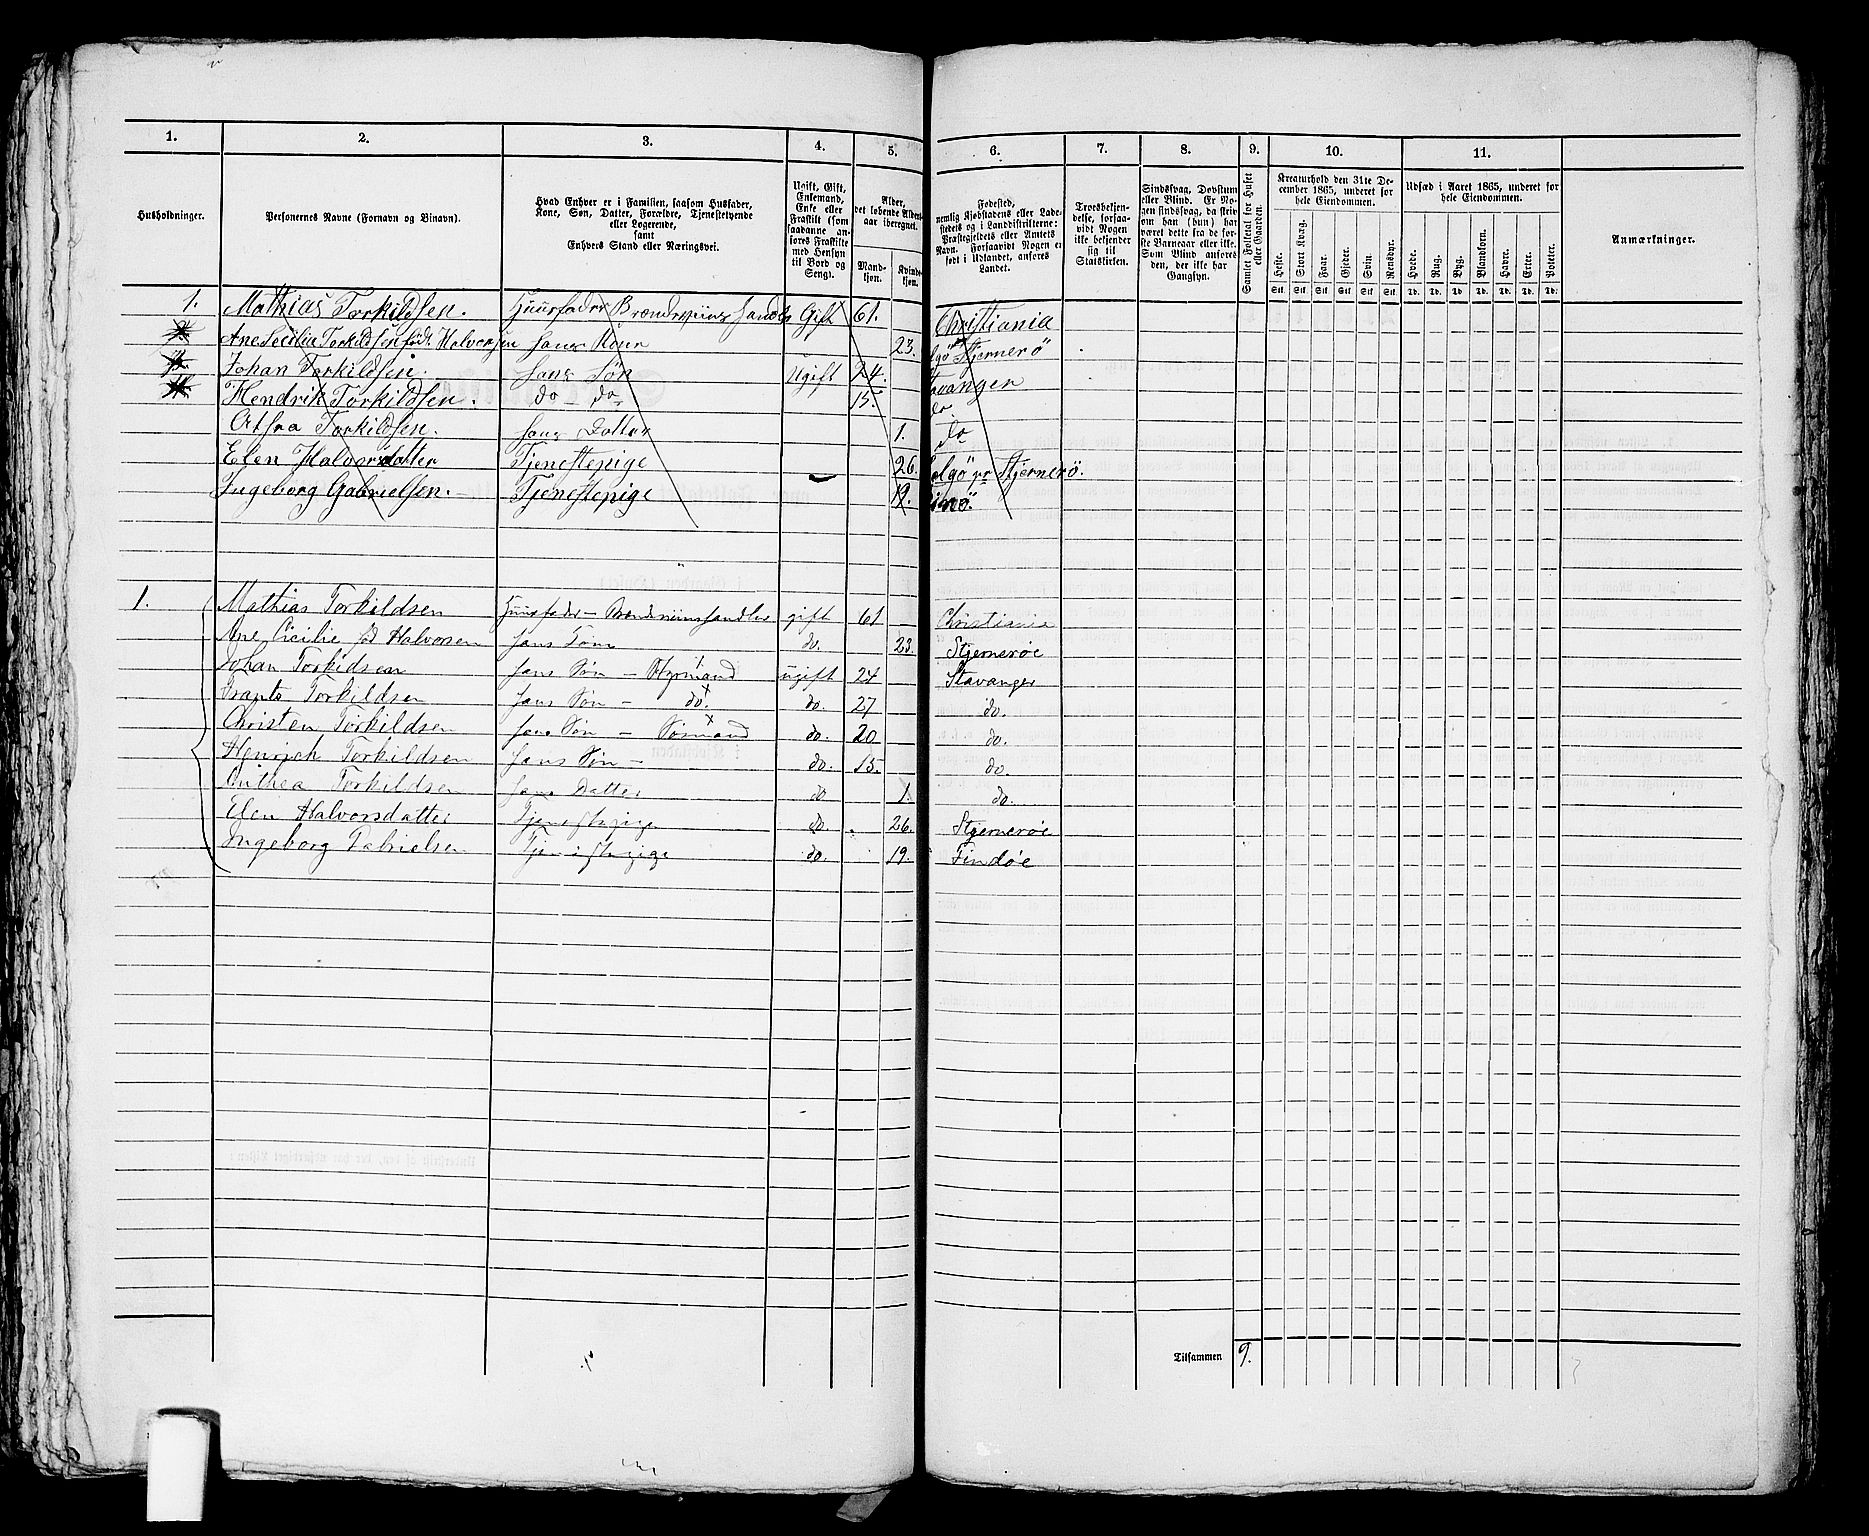 1. 2. 3. 4. 5. 6. 7. 8. 9. 10. 11.
Husholdninger.
Personernes Navne (Fornavn og Binavn).
Hvad Enhver er i Familien, saasom Husfader,
Kone, Søn, Datter, Forældre, Tjenestetyende
eller Logerende,
samt
Enhvers Stand eller Næringsvei.
Ugift, Gift,
Enkemand,
Enke eller
Fraskilt (som
saadanne an-
føres Fraskilte
med Hensyn
til Bord og
Seng).
Alder,
det løbende Alders-
aar iberegnet.
Mand-
kjøn.
Kvinde-
kjøn.
Fødested,
nemlig Kjøbstadens eller Lade-
stedets og i Landdistrikterne:
Præstegjeldets eller Amtets
Navn. Forsaavidt Nogen er
født i Udlandet, anføres
Landet.
Troesbekjen-
delse, forsaa-
vidt Nogen
ikke bekjender
sig til
Statskirken.
Sindssvag, Døvstum
eller Blind. Er No-
gen sindssvag, da skriv
om han (hun) har
været dette fra de før-
ste Barneaar eller ikke.
Som Blind anføres
den, der ikke har
Gangsyn.
Samlet Folketal for Huset
eller Gaarden.
Kreaturhold den 31te De-
cember 1865, underet for
hele Eiendommen.
Heste. Stort Kvæg. Faar. Gjeder. Svin. Rensdyr.
Stk. Stk. Stk. Stk. Stk. Stk.
Udsæd i Aaret 1865, underet for
hele Eiendommen.
Hvede. Rug. Byg. Blandkorn. Havre. Erter. Poteter.
Td. Td. Td. Td. Td. Td. Td.
Anmærkninger.
1. Mathias Torkildsen. Huusfader Gift 61. Christiania
Ane Secilie Torkildsen født Halvorsen hans Kone 23. Stjernerö
Johan Torkildsen. hans Sön Ugift 24.
Hendrik Torkildsen. do do 15. do
Torkildsen. hans Datter 1. do
Elen Halvorsdatter Tjenestepige 26. Stjernerö.
Ingeborg Gabrielsen. Tjenestepige 19.
1. Mathias Torkildsen Huusfader – gift 61 Christiania
Ane Cicilie Halvorsen hans 23. Stjernerøe
Johan Torkidsen hans Søn – Styrmand ugift 24 Stavanger
Torkildsen hans Søn – do. do. 27 do.
Christen Torkildsen hans Søn – Sømand do. 20 do.
Henrich Torkildsen hans Søn – do. 15. do.
Torkildsen hans Datter do 1. do.
Elen Halvorsdatter Tjenestepige do 26. Stjernerøe
Ingeborg Gabrielsen Tjenestepige do. 19. Findøe
Tilsammen 9.